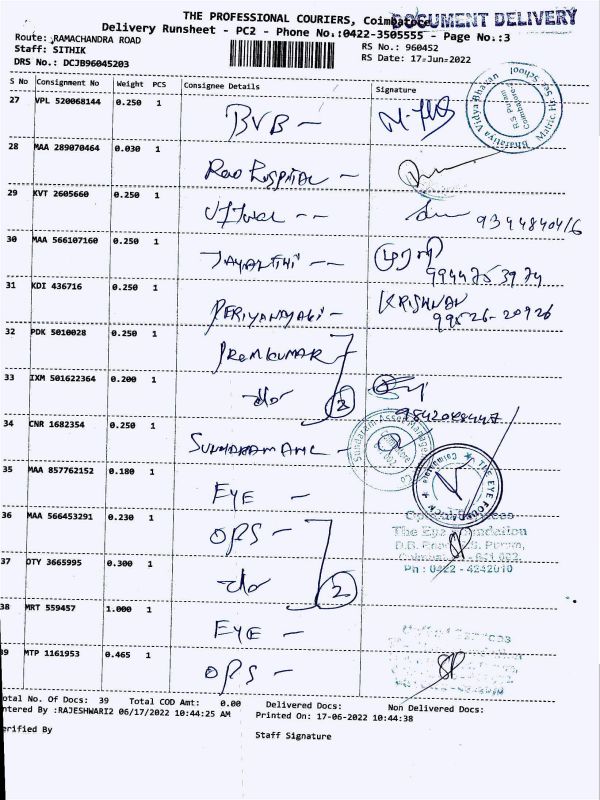 THE PROFESSIONAL COURIERS, Coimbatore
DOCUMENT DELIVERY
Delivery Runsheet - PC2 - Phone No.:0422-3505555 - Page No.:3
Route: RAMACHANDRA ROAD
RS No.: 960452
Staff: SITHIK
RS Date: 17-Jun-2022
DRS No.: DCJB96045203
S No Consignment No Weight PCS Consignee Details Signature
27 VPL 520068144 0.250 1 BVB -
Bharatiya Vidya Bhavan Matric. Hr. Sec School
R.S. Puram Coimbatore-2
28 MAA 289070464 0.030 1 Rao Hospital -
29 KVT 2605660 0.250 1
30 MAA 566107160 0.250 1 JAYANTHI -- முரளி
9944753974
31 KDI 436716 0.250 1 PERIYANAYAKI - KRISHNAN
32 PDK 5010028 0.250 1 PREMKUMAR
33 IXM 501622364 0.200 1 do 2
34 CNR 1682354 0.250 1 SUNDARAM AMC -
Sundaram Asset Manage
35 MAA 857762152 0.180 1 EYE -
THE EYE FOUNDATION Coimbatore
36 MAA 566453291 0.230 1 OPS -
The Eye Foundation
D.B. Road, R.S. Puram,
Ph : 0422 - 4242010
37 OTY 3665995 0.300 1 do 2
38 MRT 559457 1.000 1 EYE -
39 MTP 1161953 0.465 1 OPS -
otal No. Of Docs: 39 Total COD Amt: 0.00 Delivered Docs: Non Delivered Docs:
ntered By :RAJESHWARI2 06/17/2022 10:44:25 AM Printed On: 17-06-2022 10:44:38
erified By
Staff Signature